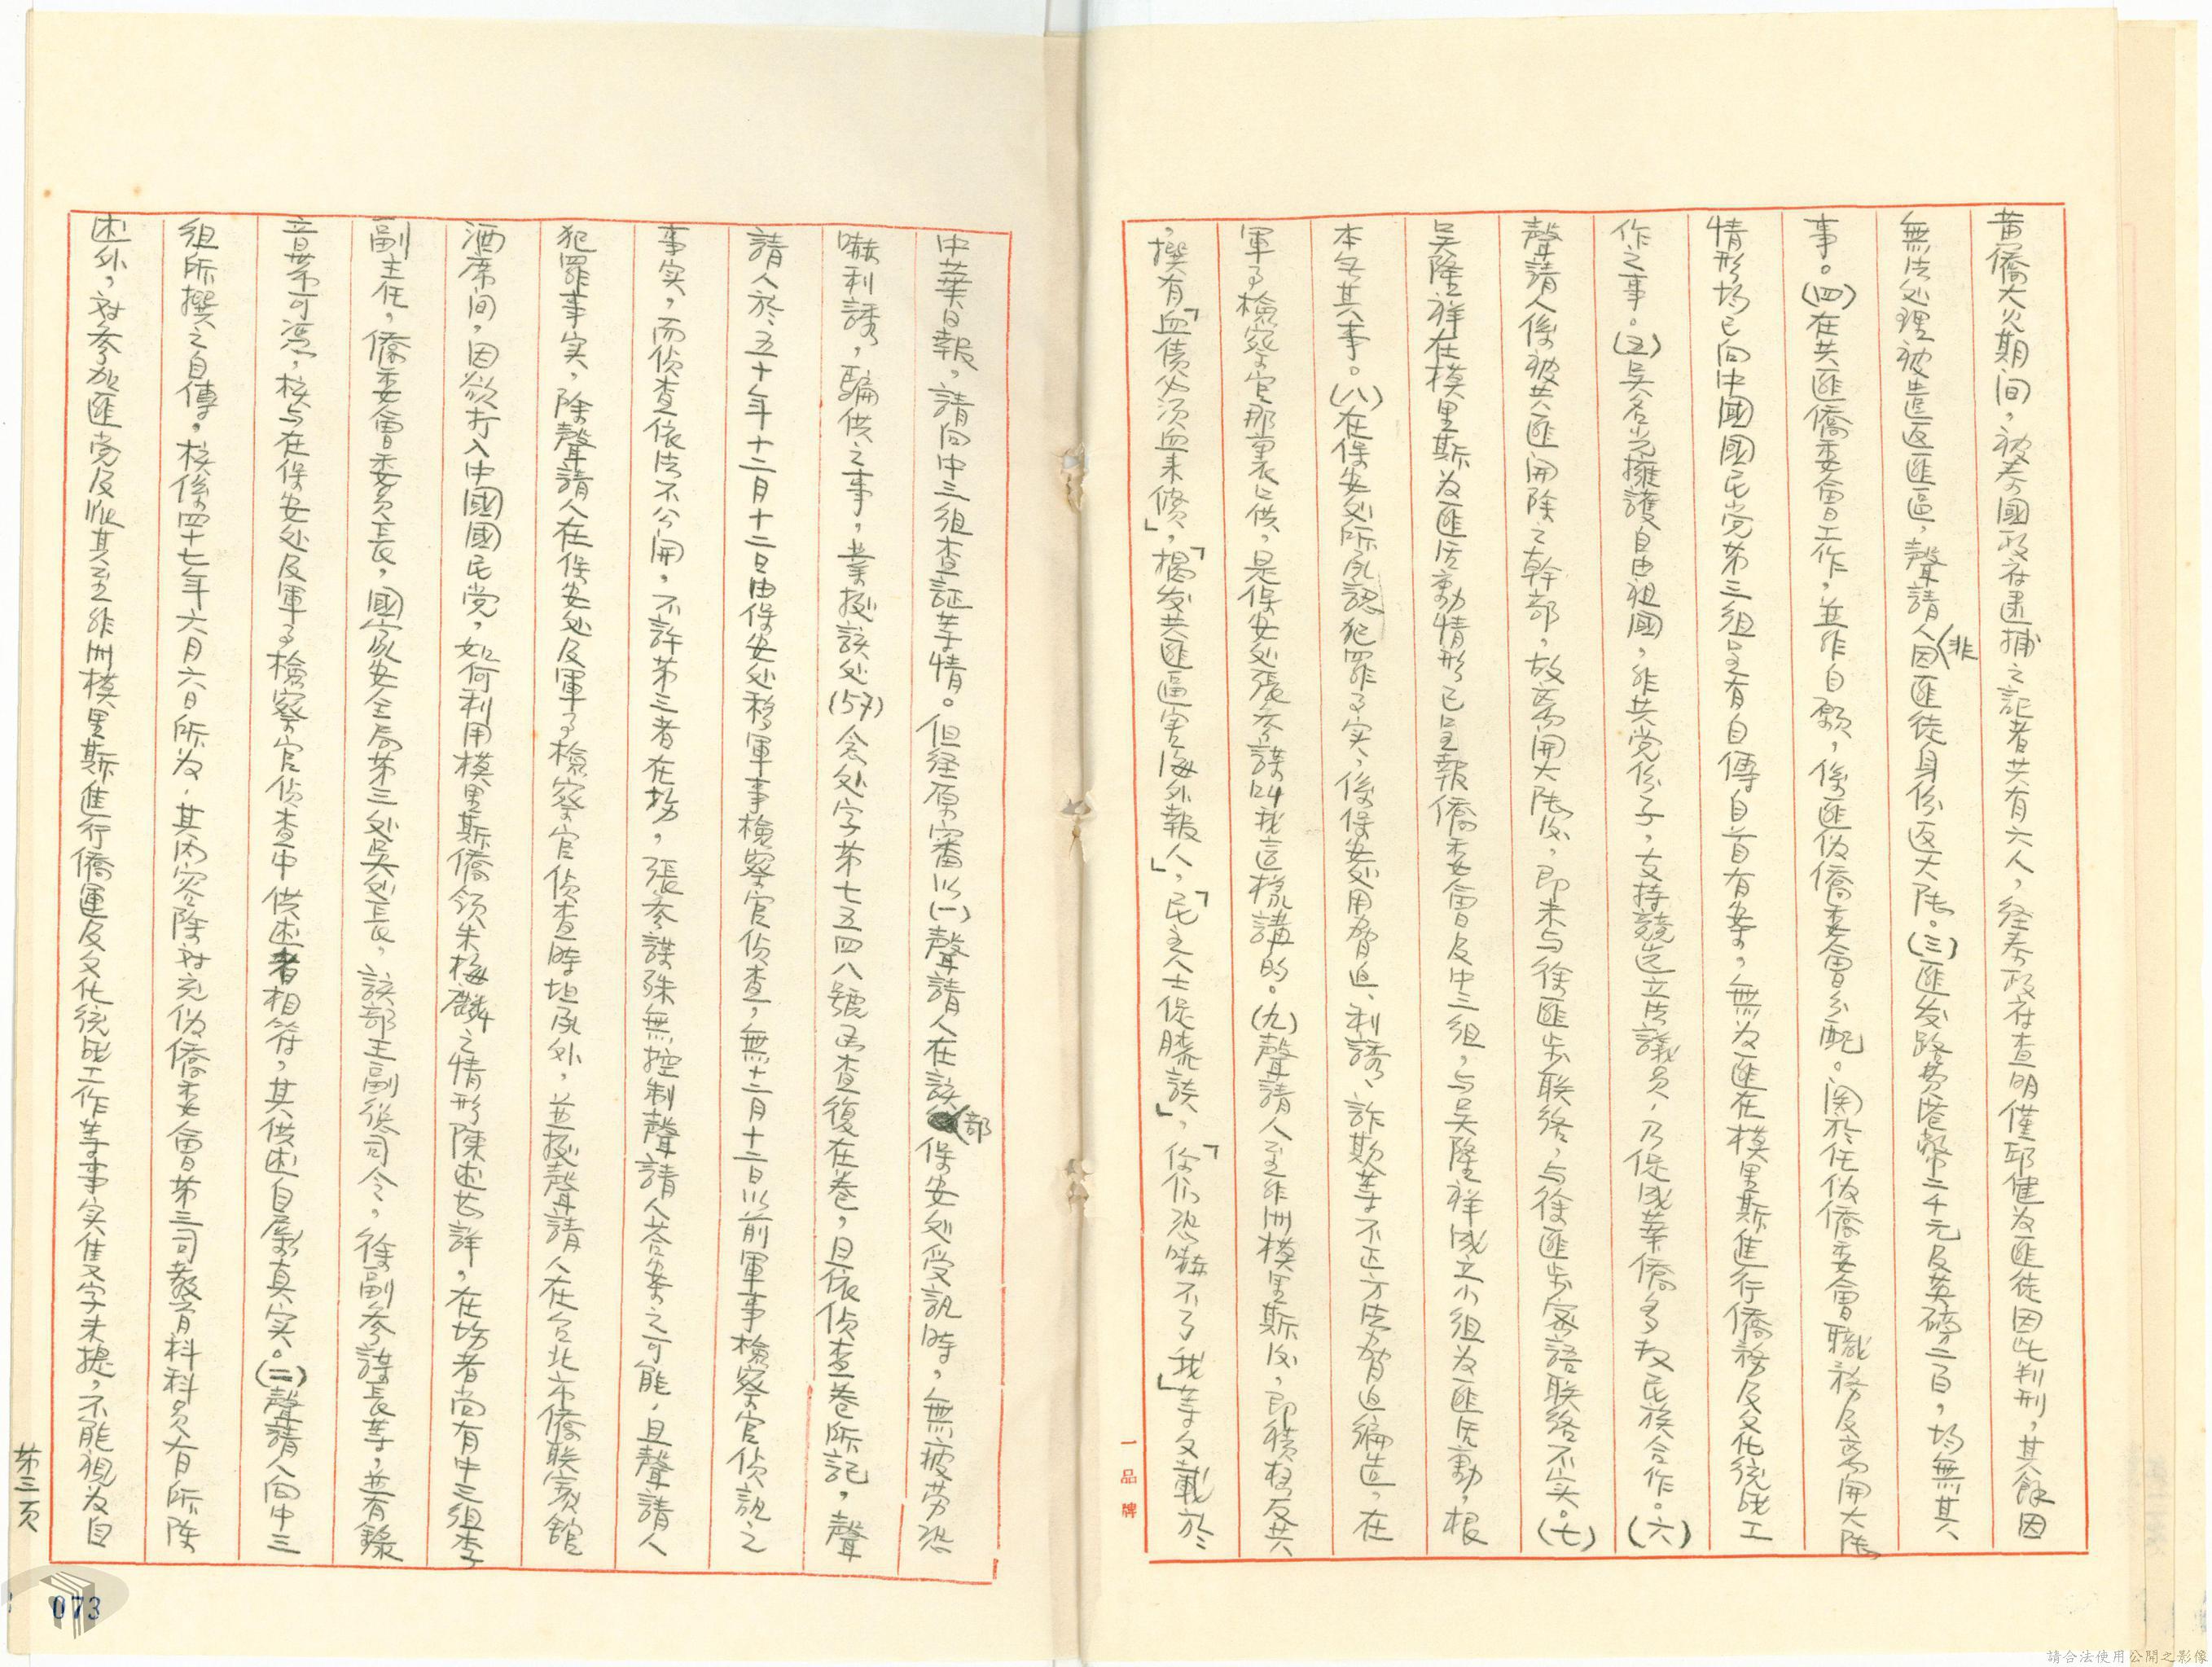 黃僑大火期間，被泰國政府逮捕之記者共有六人，経泰政府查明僅邱健为匪徒因此判刑，其餘因
無法处理被遣返匪區，聲請人非因匪徒身份返大陸。(三)匪发路費港幣二千元及英磅二百，均無其
事。(四)在共匪僑委會工作，並非自願，係匪伪僑委會分配。関於任伪僑委會職務及离開大陸
情形均已向中國國民党第三組呈有自傳自首有案。無为匪在模里斯進行僑務及文化統战工
作之事。(五)吳名光擁護自由祖國，非共党份子，支持競选立法議员，乃促成華僑多友民族合作。(六)
聲請人係被共匪開除之幹部，故离開大陸后，即未与徐匪步联络，与徐匪步密語联络不实。(七)
吳隆祥在模里斯为匪活動情形已呈報僑委會及中三組，与吳隆祥成立小組为匪活動，根
本無其事。(八)在保安处所承認犯罪事实，係保安处用脅迫、利誘、詐欺等不正方法脅迫編造，在
軍事檢察官那裏之供，是保安处張參謀叫我這樣講的。(九)聲請人至非洲模里斯后，即積極反共
，撰有「血债必须血來償」，「揭发共匪逼害海外報人」，「民主人士促膝談」，「你们恐嚇不了我」等文載於
中華日報，請向中三組查証等情。但経原審以(一)聲請人在該部保安处受訊時，無疲劳恐
嚇利誘，騙供之事，業據該处(57)念处字第七五四八號函查復在卷，且依偵查卷所記，聲
請人於五十年十二月十二日由保安处移軍事檢察官偵查，無十二月十二日以前軍事檢察官偵訊之
事实，而偵查依法不公開，不許第三者在場，張參謀殊無控制聲請人答案之可能，且聲請人
犯罪事实，除聲請人在保安处及軍事檢察官偵查時坦承外，並據聲請人在台北市僑联賓館
酒席间，因欲打入中國國民党，如何利用模里斯僑领朱梅麟之情形陳述甚詳，在场者尚有中三組李
副主任，僑委會委员長，國家安全局第三处吳处長，該部王副総司令，徐副參謀長等，並有錄
音帶可凭，核与在保安处及軍事檢察官偵查中供述者相符，其供述自屬真实。(二)聲請人向中三
組所撰之自傳。核係四十七年六月六日所为，其内容除对充伪僑委會第三司教育科科员有所陳
述外，对參加匪党及派其至非洲模里斯進行僑運及文化統战工作等事实隻字未提，不能视为自
第三页
一品牌
073
請合法使用公開之影像